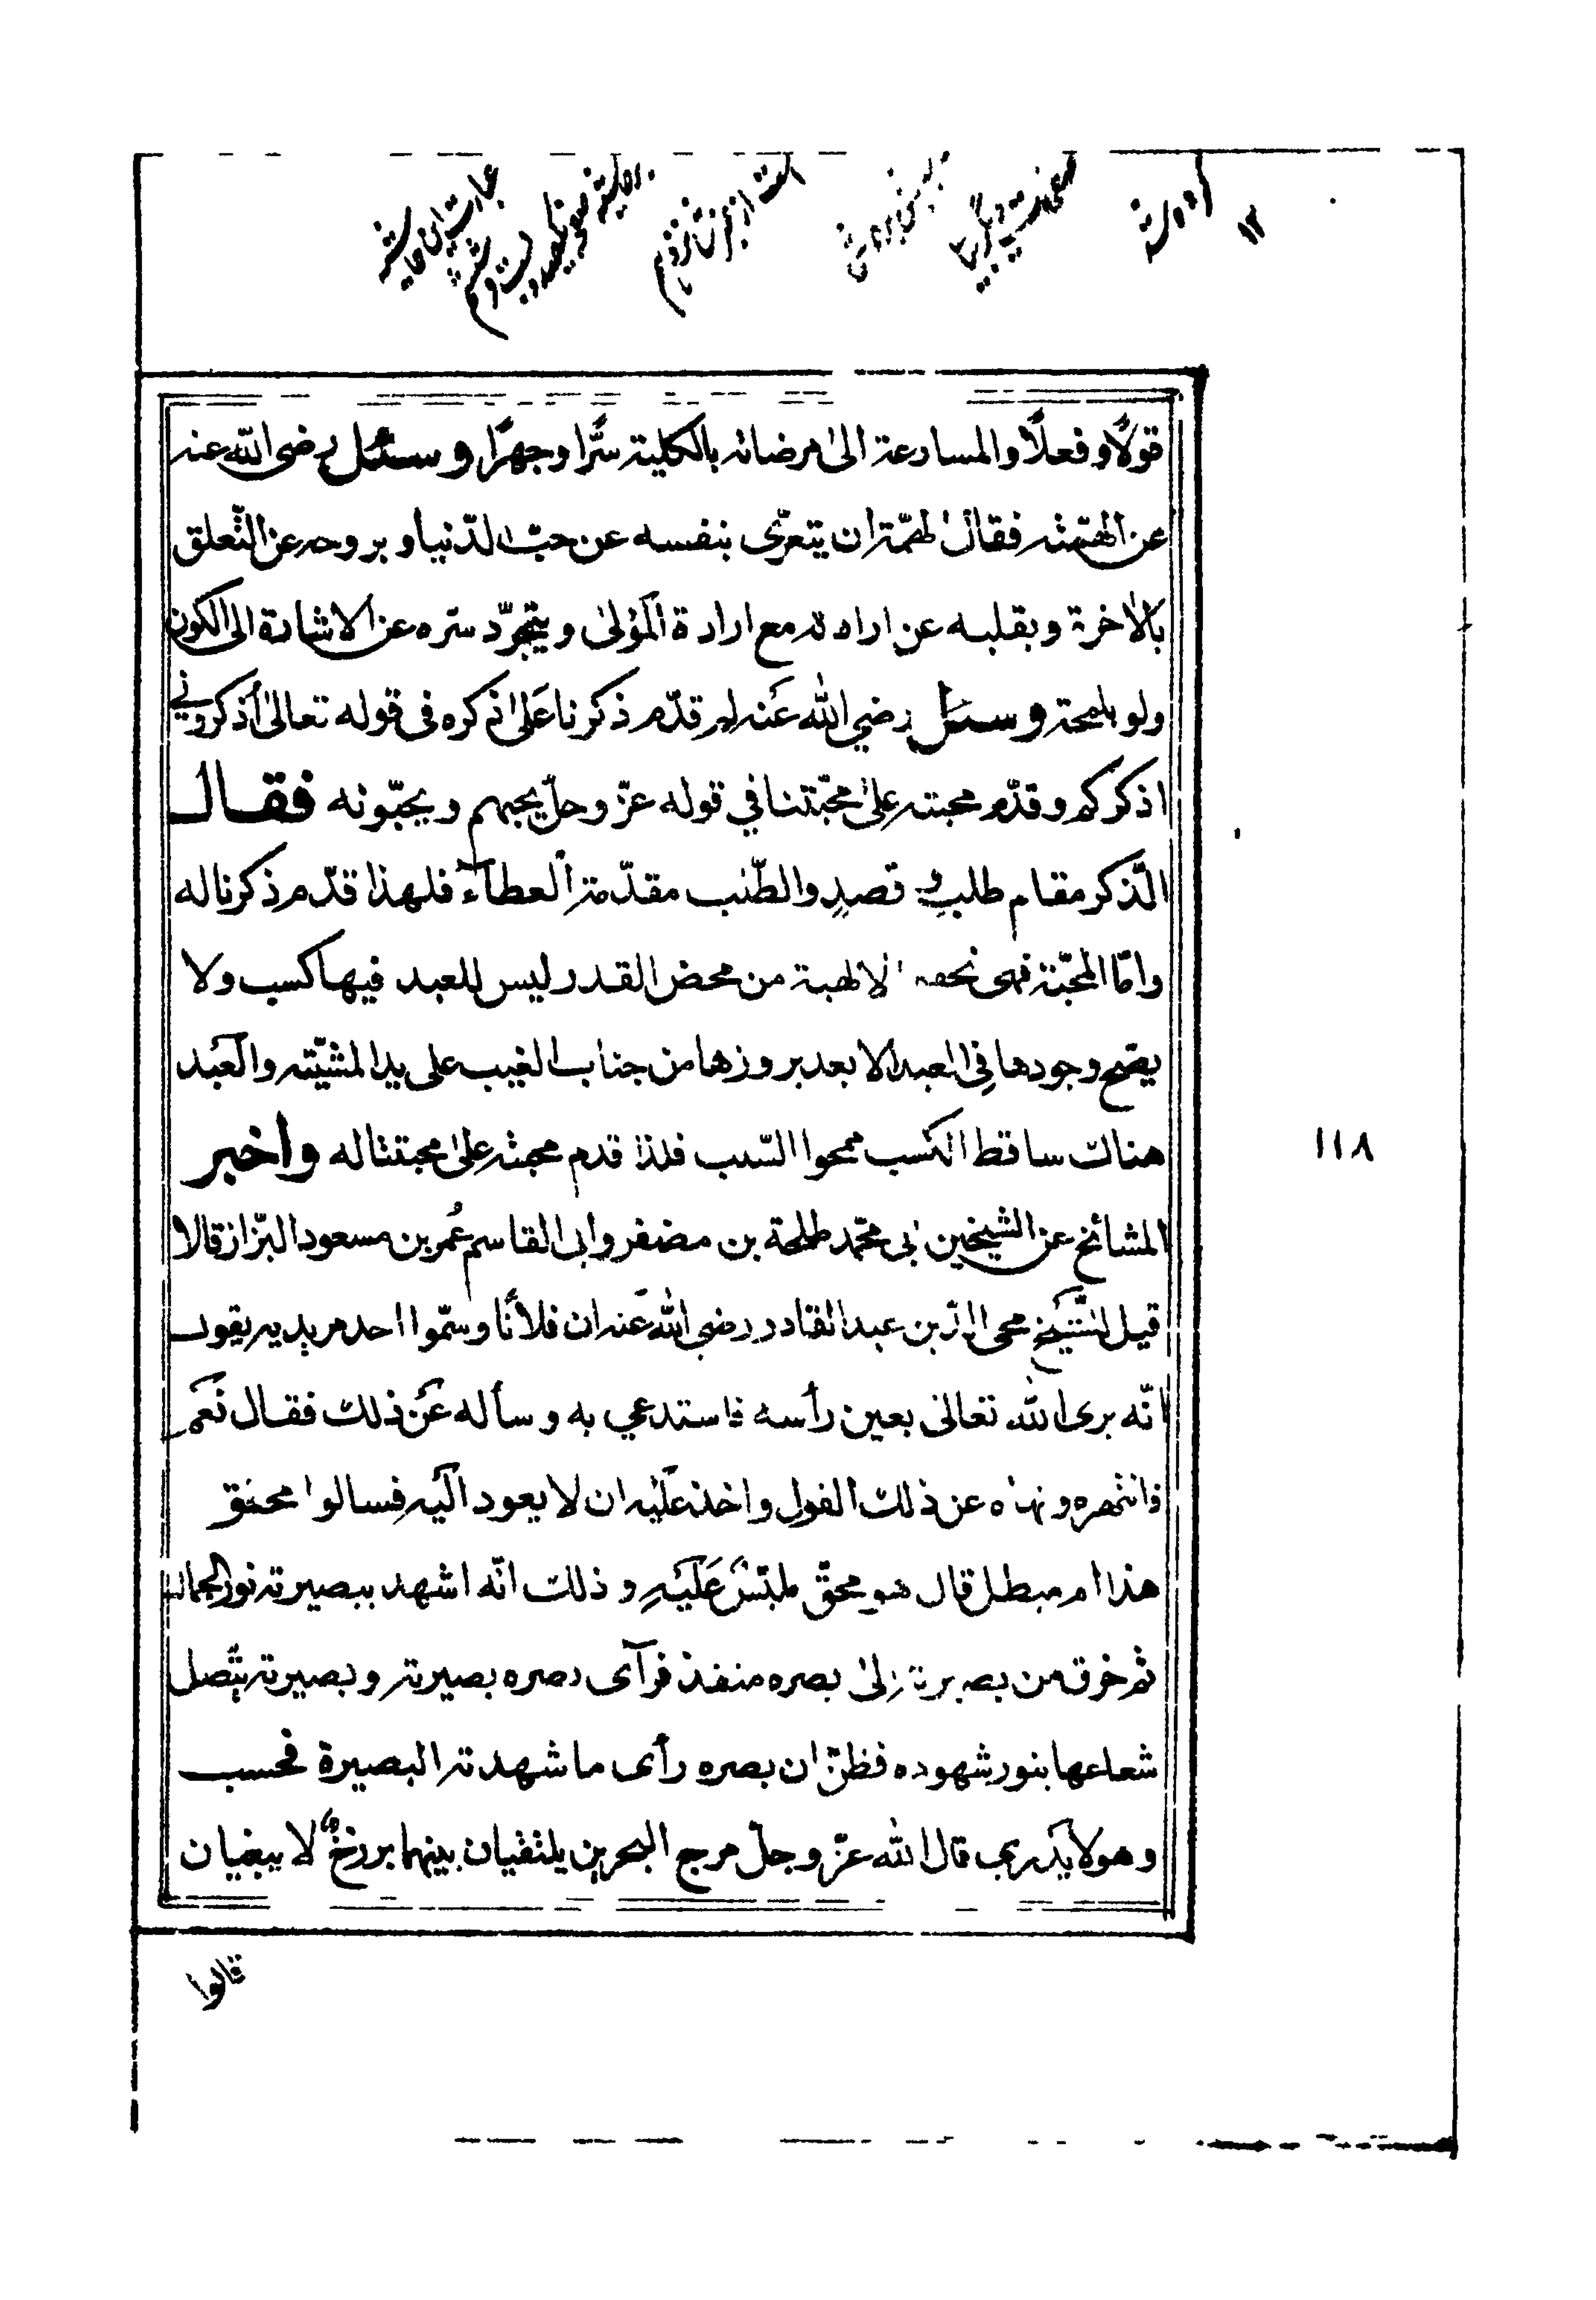 قولًا وفعلًا والمسارعة الى مرضاته بالكلية سّرا وجهرًا وسئل رضى الله عنه
عن الهمّة فقال لهمّة ان يتعرّى بنفسه عن حبّ الدّنيا و بروحه عن التّعلق
بالاخرة و بقلبه عن ارادته مع ارادة المَوْلىٰ و يتجرّد سّره عن الاشارة الى الكون
ولو بلمحة وسئل رضي الله عَنه لم قدّم ذكرنا عَلىٰ ذكره فى قوله تعالىٰ أذكروني
اذكركم و قدّم محبته علىٰ محبّتنا في قوله عزّ وجلّ يحبهم و يحبّونه فقال
الّذكر مقام طلبٍ و قصدٍ والطّلب مقدّمة العطآء فلهذا قدّم ذكرنا له
وامّا المحبّة فهى تحفه الالهية من محض القدر ليس للعبد فيها كسب ولا
يصّح وجودها فِى العبد الا بعد بروزها من جناب الغيب على يد المشيّته والعَبد
هناك ساقط الكسب ممحوا السّبب فلذا قدم محبته علىٰ محبتنا له واخبر
المشائخ عن الشيخين ابى محمّد طلحة بن مضفر وابى القاسم عُمر بن مسعود البّزاز قالا
قيل للشّيخ محى الدّين عبد القادر رضى الله عَنه ان فلانًا وسّموا احد مريديه يقول
انّه يرى الله تعالى بعين رأسه فاستدعي به و سأله عَن ذلك فقال نَعَم
فانتهره و نهاه عن ذلك القول واخذ عَليه ان لا يعود اليه فسالوا محقق
هذا ام مبطل قال هو محقّ ملبّسٌ عَلَيهِ و ذلك انّه اشهد ببصيرته نور الجمال
ثم خرق من بصيرته الىٰ بصره منفذ فرآى بصره بصيرته و بصيرته يتّصل
شعاعها بنور شهوده فظنّ ان بصره رأى ما شهدته البصيرة فحسب
وهو لا يَدرى قال الله عزّ وجلّ مرج البحرين يلتقيان بينهما برزخٌ لا يبغيان
١١٨
قالوا